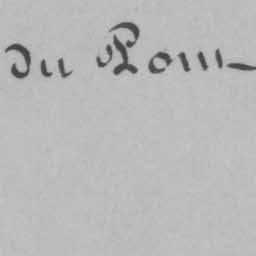 du Pom